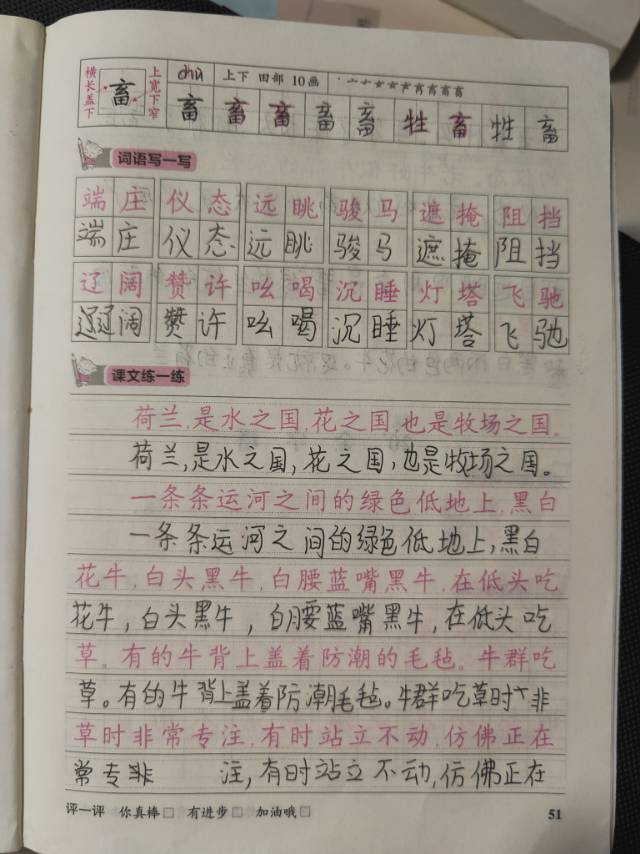 横长盖下 畜 上宽下窄
chù 上下 田部 10画
畜 畜 畜 畜 畜 牲 畜 牲 畜
词语写一写
端庄 仪态 远眺 骏马 遮掩 阻挡
端庄 仪态 远眺 骏马 遮掩 阻挡
辽阔 赞许 吆喝 沉睡 灯塔 飞驰
辽阔 赞许 吆喝 沉睡 灯塔 飞驰
课文练一练
荷兰,是水之国,花之国,也是牧场之国。
荷兰,是水之国,花之国,也是牧场之国。
一条条运河之间的绿色低地上,黑白
一条条运河之间的绿色低地上,黑白
花牛,白头黑牛,白腰蓝嘴黑牛,在低头吃
花牛,白头黑牛,白腰蓝嘴黑牛,在低头吃
草。有的牛背上盖着防潮的毛毡。牛群吃
草。有的牛背上盖着防潮毛毡。牛群吃草时非
草时非常专注,有时站立不动,仿佛正在
常专 注,有时站立不动,仿佛正在
评一评 你真棒□ 有进步□ 加油哦□ 51